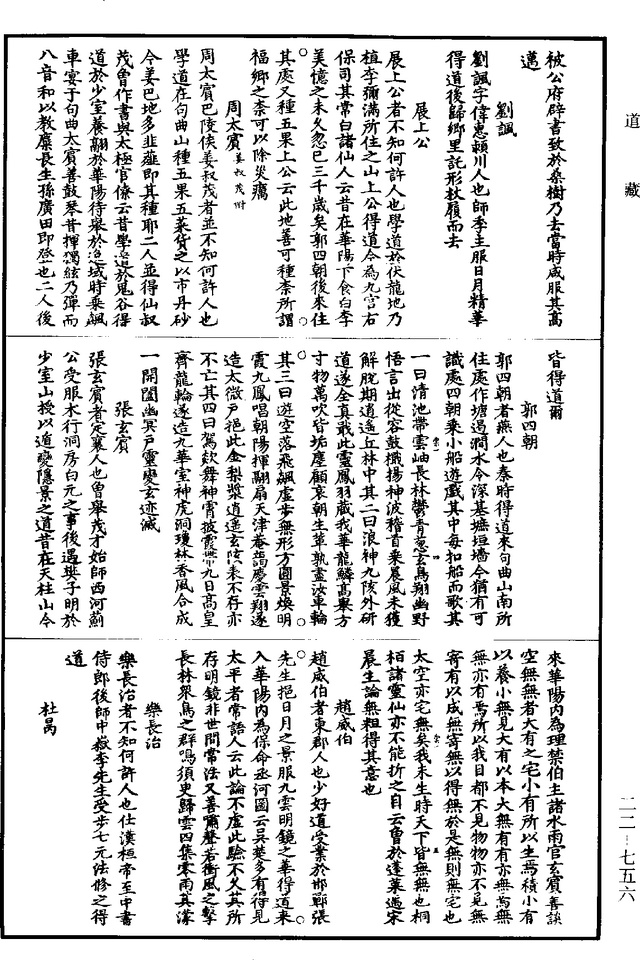 道藏
被公府辟書致於桑樹乃去當時咸服其高
邁
劉諷
劉諷字偉惠頴川人也師季主服日月精華
得道後歸鄉里託形杖履而去
展上公
展上公者不知何許人也學道於伏龍地乃
植李彌滿所住之山上公得道今為九宮右
保司其常白諸仙人云昔在華陽下食白李
美憶之未久忽已三千歲矣郭四朝後來住
其處又種五果上公云此地善可種柰所謂
福鄉之柰可以除災癘
周太賓姜叔茂附
周太賓巴陵侯姜叔茂者並不知何許人也
學道在句曲山種五果五菜貨之以市丹砂
今姜巴地多韭薤即其種耶二人並得仙叔
茂曾作書與太極官僚云昔學道於鬼谷得
道於少室養翮於華陽待舉於逸域時乘飆
車宴于句曲太賓善鼓琴昔揮獨絃乃彈而
八音和以教糜長生孫廣田即登也二人後
皆得道爾
郭四朝
郭四朝者燕人也秦時得道來句曲山南所
住處作塘遏澗水令深基墌垣墻今猶有可
識處四朝乘小船遊戲其中每扣船而歌其
一曰清池帶雲岫長林鬱青葱玄鳥翔幽野
悟言出從容鼓檝揚神波稽首乘晨風未獲
解脫期逍遥丘林中其二曰浪神九陔外研
道遂全真戢此靈鳳羽藏我華龍鱗高舉方
寸物萬吹皆垢塵顧哀朝生蕣孰盡汝車輪
其三曰遊空落飛飆虛步無形方圓景煥明
霞九鳳唱朝陽揮翮扇天津菴藹慶雲翔遂
造太微户挹此金梨漿逍遥玄陔表不存亦
不亡其四曰駕欻舞神霄披霞帶九日高皇
齊龍輪遂造九華室神虎洞瓊林香風合成
一開闔幽冥户靈變玄迹滅
張玄賓
張玄賓者定襄人也曾舉茂才始師西河薊
公受服朮行洞房白元之事後遇樊子明於
少室山授以遁變隱景之道昔在天柱山今
來華陽内為理禁伯主諸水雨官玄賓善談
空無無者大有之宅小有所以生焉積小有
以養小無見大有以本大無有有亦無焉無
無亦有焉所以我目都不見物物亦不見無
寄有以成無寄無以得無於是無則無宅也
太空亦宅無矣我未生時天下皆無無也桐
栢諸靈仙亦不能折之自云曾於蓬萊遇宋
晨生論無粗得其意也
趙威伯
趙威伯者東郡人也少好道受業於邯鄲張
先生挹日月之景服九雲明鏡之華得道來
入華陽内為保命丞河圖云吳楚多有得見
太平者常語人云此論不虛此驗不久其所
存明鏡非世間常法又善嘯聲若衝風之擊
長林衆鳥之群鳴須臾歸雲四集零雨其濛
樂長治
樂長治者不知何許人也仕漢桓帝至中書
侍郎後師中嶽李先生受步七元法修之得
道
杜昺
二二－七五六